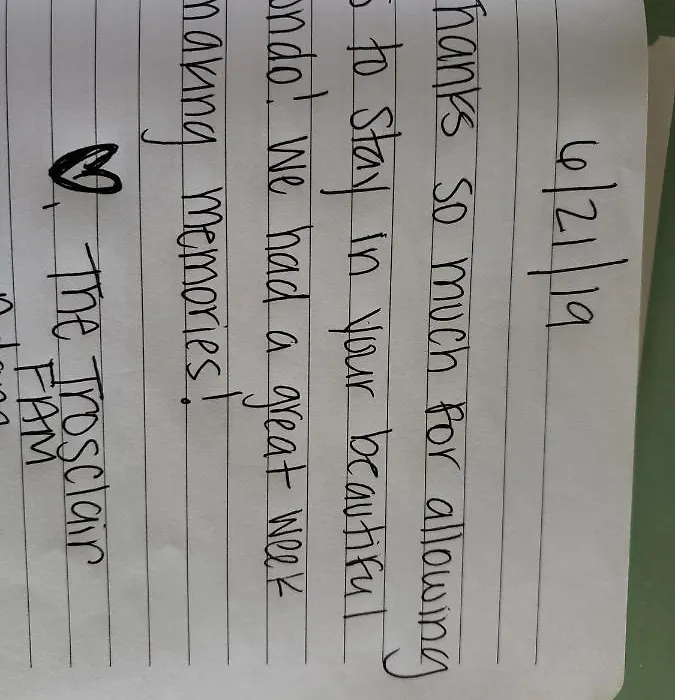 6/21/19
hanks so much for allowing
s to stay in your beautiful
ondo! We had a great week
making memories!
♥, The Trosclair
FAM